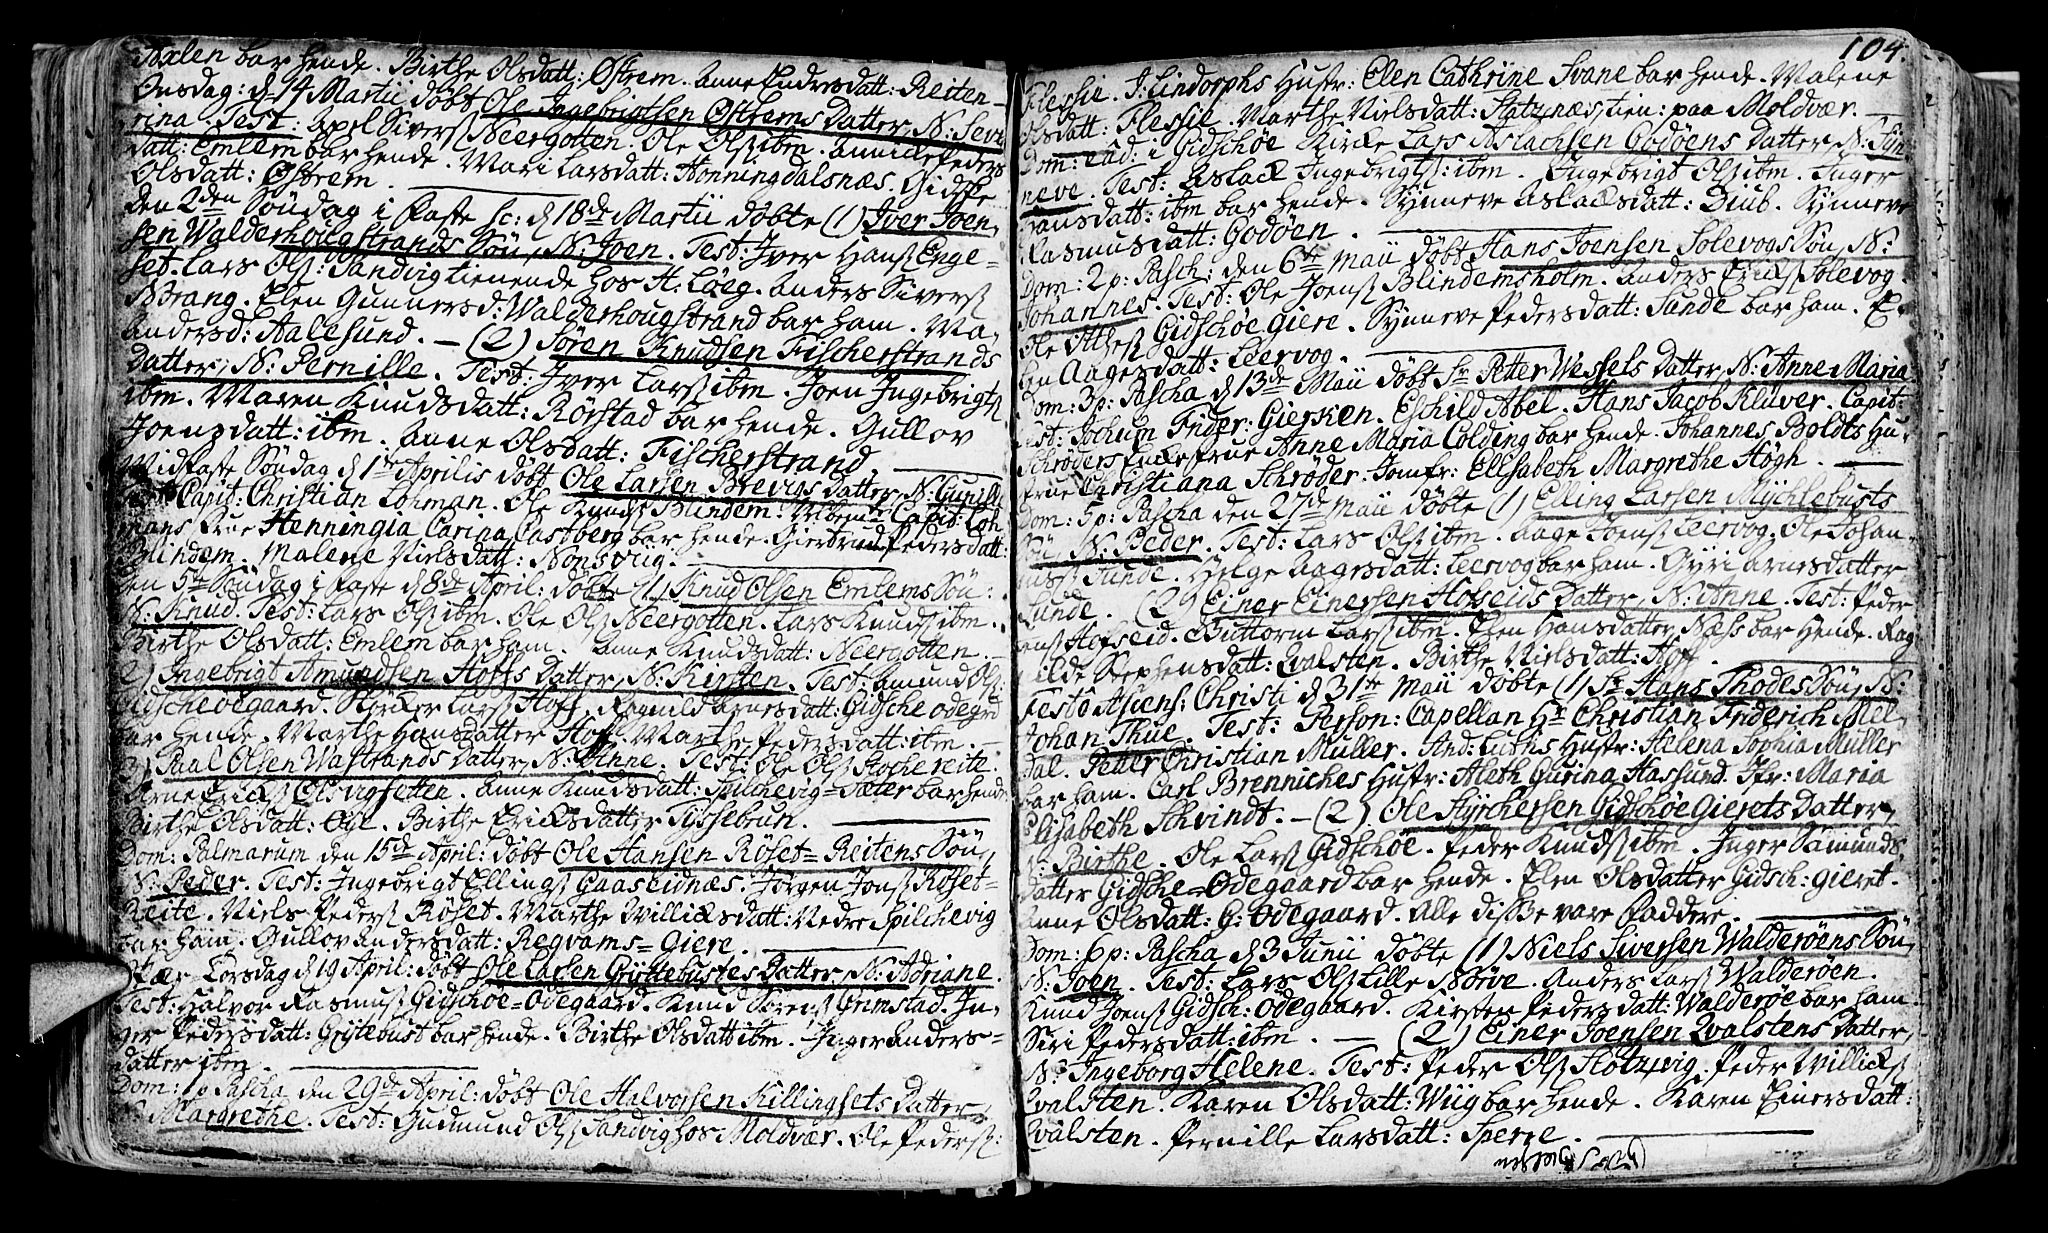 Axlen bar hende. Birthe Olsdatt: Østrem. Anne Endresdatt: Reiten
Onsdag: d 14 Martii döbt Ole Ingebrigtsen Østrems Datter, N: Seve
rina. Test: Axel Sivers: Neergotten. Ole Ols: ibm. Annicke Peders
datt: Emlem bar hende. Mari Larsdatt: Honningdalsnæs. Gidske
Olsdatt: Østrem.
Den 2den Söndag i Faste sc: d 18de Martii döbte (1) Iver Joen,
sen Walderhougstrands Sön, N: Joen. Test: Iver Hans: Enge=
set. Lars Ols: Sandvig tienende hos H. Löeg. Anders Sivers:
Brang. Elen Gunnersd: Walderhougstrand bar ham. Ma,
Andersd: Aalesund. — (2) Sören Knudsen Fischerstrands
Datter, N: Pernille. Test: Iver Lars: ibm. Joen Ingebrigts:
ibm. Maren Knudsdatt: Rörstad bar hende. Gullov
Joensdatt: ibm. Anne Olsdatt: Fischerstrand.
Midfaste Söndag d 1te Aprilis döbt Ole Larsen Brevigs Datter, N: Gunild
Capit: Christian Lohman. Ole Knuds: Blindem. Capit: Loh
mans Frue Henningia Carina Castberg bar hende. Giertrud Pedersdatt:
Blindem. Malene Nielsdatt: Nonsviig.
Den 5te Söndag i Faste d 8de April: döbte (1) Knud Olsen Emlems Sön:
N: Knud. Test: Lars Ols: ibm. Ole Ols: Neergotten. Lars Knuds: ibm.
Birthe Olsdatt: Emlem bar ham. Anne Knudsdatt: Neergotten. —
2) Ingebrigt Amundsen Hoffs Datter, N: Kirsten. Test: Amund Ols:
Gidscheödegaard. Styrker Lars: Hoff. Ragnild Arnesdatt: Gidsche ödegrd
bar hende. Marthe Hansdatter Hoff. Marthe Pedersdatt: ibm. —
3) Paul Olsen Wastrands Datter, N: Anne. Test: Ole Ols: Stochereite:
Arne Ericks: Olsvigsetten. Anne Knudsdatt: Spilchevig=Sæter bar hende
Birthe Olsdatt: Øye. Birthe Ericksdatter Tyssebun.
Dom: Palmarum den 15de April: döbt Ole Hansen Röset=Reitens Sön,
N: Peder. Test: Ingebrigt Ellings: Gaaseidnæs. Jörgen Jons: Röset=
Reite. Niels Peders: Röset. Marthe Willicksdatt: Nedre Spilchevig
bar ham. Gullov Andersdatt: Reqvams=Giere.
Skær Torsdag d 19 April: döbt Ole Larsen Gröttebustes Datter, N: Adriane.
Test: Halvor Rasmus: Gidschöe=Ødegaard. Knud Sörens: Grimstad. In,
ger Pedersdatt: Gröttebust bar hende. Birthe Olsdatt ibm. Inger Anders=
datter ibm.
Dom: 1 p Pascha den 29de April: döbt Ole Halvorsen Killingsets Datter,
N: Margrethe. Test: Gudmund Ols: Sandvig hos Moldvær. Ole Peders:
104.
Flessie. J: Lindorphs Hustr: Elen Cathrine Svane bar hende. Malene
Olsdatt: Flessie. Marthe Nielsdatt: Statznæs tien: paa Moldvær. —
Dom: ead: i Gidschöe Kirke Lars Aslachsen Godöens Datter, N: Syn,
neve. Test: Aslack Ingebrigts: ibm. Ingebrigt Ols: ibm. Inger
Hansdatt: ibm bar hende. Synneve Aslacksdatt: Diub. Synneve
Rasmusdatt: Godöen.
Dom: 2 p: Pasch: den 6te Maii döbt Hans Joensen Solevogs Sön, N:
Johannes. Test: Ole Joens: Blindemsholm. Anders Ericks: Solevog.
Ole Otthes: Gidschöe Giere. Synneve Pedersdatt: Sunde bar ham. E,
len Aagesdatt: Leervog.
Dom: 3 p: Pascha d 13de Maii döbt Sr Petter Wessels Datter, N: Anne Maria
Test: Jochum Frider: Giersken. Eschild Abel. Hans Jacob Klüver. Capit:
Schröders Enckefrue Anne Maria Colding bar hende. Johannes Boldts Hu,
frue Christiana Schröder. Jomfr: Elisabeth Margrethe Høgh.
Dom: 5 p: Pascha den 27de Maii döbte (1) Elling Larsen Mychlebusts
Sön, N: Peder. Test: Lars Ols: ibm. Aage Joens: Leervog. Ole Johan,
nes: Sunde. Helge Aagesdatt: Leervog bar ham. Gyri Arnesdatter
Sunde. (2) Einer Einersen Hofseids Datter, N: Anne. Test: Peder
Hofseid. Buttorm Lars: ibm. Elen Hansdatter Næss bar hende. Rag
nilde Stephensdatt: Qvalsten. Birthe Nielsdatt: Hoff.
Festo Ascens: Christi d 31te Maii döbte (1) Sr Hans Thodes Sön, N:
Johan Thue. Test: Person: Capellan Hr Christian Friderich Mel,
dal. Petter Christian Müller. And: Hustr: Helena Sophia Müller
bar ham. Carl Brenniches Hustr: Aleth Gurina Hassund. Jfr: Maria
Elisabeth Schvindt. — (2) Ole Styrchersen Gidschöe Gierets Datter,
N: Birthe. Ole Lars: Gidschöe. Peder Knuds: ibm. Inger Samunds,
datter Gidsche=Ødegaard bar hende. Elen Olsdatter Gidsch: Gieret.
Anne Olsdatt: G: Ødegaard. Alle disse vare Faddere.
Dom: 6 p: Pascha d 3 Junii döbte (1) Niels Siversen Walderöens Sön,
N: Joen. Test: Lars Ols: Lille Nörve. Anders Lars: Walderöen.
Knud Joens: Gidsch: Ødegaard. Kirsten Pedersdatt: Walderöe bar ham
Siri Pedersdatt: ibm. — (2) Einer Joensen Qvalstens Datter,
N: Ingeborg Helene. Test: Peder Ols: Holzvig. Peder Willicks:
Qvalsten. Karen Olsdatt: Wiig bar hende. Karen Einersdatt:
Qvalsten. Pernille Larsdatt: Sperre.